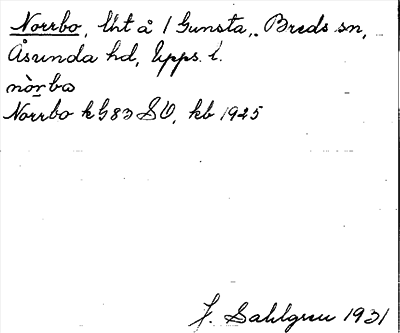 Norrbo, lht å 1 Gunsta, Breds sn,
Åsunda hd, Upps. l.
nòrbo
Norrbo k G83 SO, kb 1925
J. Sahlgren 1931